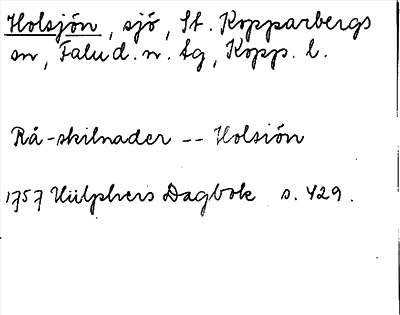 Holsjön, sjö, St. Kopparbergs
sn, Falu d. n. tg, Kopp. l.
Rå-skilnader -- Holsiön
1757 Hülphers Dagbok s. 429.